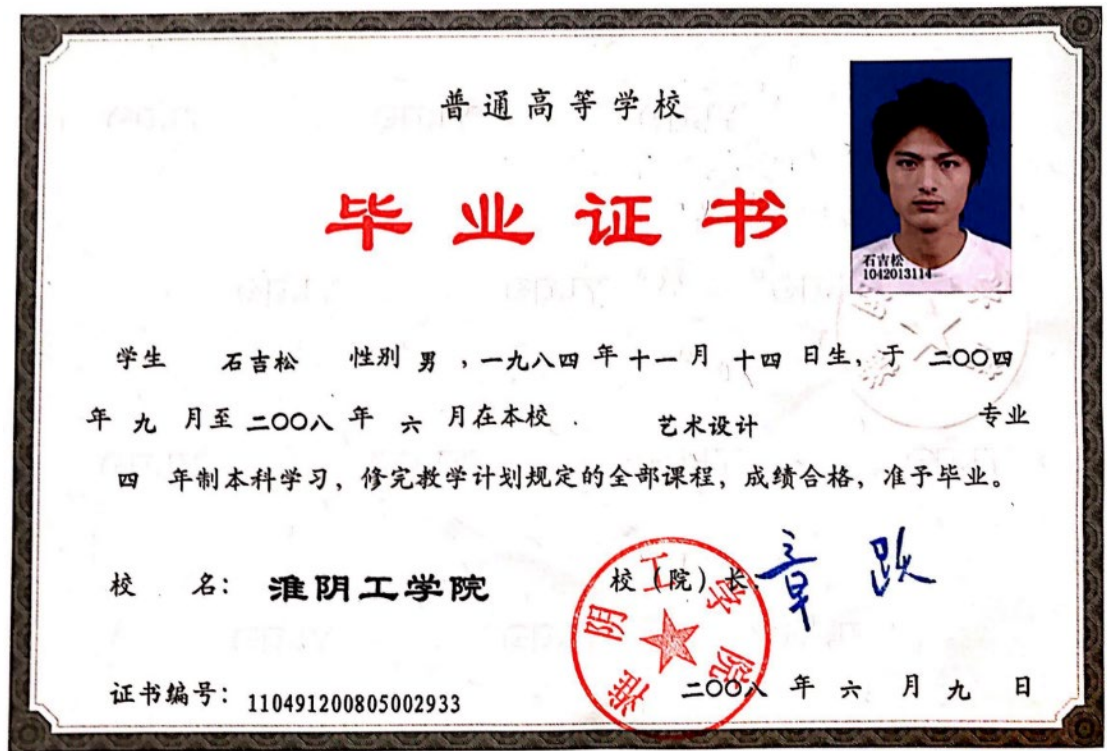 普通高等学校
毕业证书
石吉松
1042013114
学生 石吉松 性别 男 ，一九八四 年 十一 月 十四 日生，于 二〇〇四
年 九 月至 二〇〇八 年 六 月在本校 艺术设计 专业
四 年制本科学习，修完教学计划规定的全部课程，成绩合格，准予毕业。
校 名： 淮阴工学院
校（院）长： 章跃
淮阴工学院
证书编号： 110491200805002933
二〇〇八 年 六 月 九 日